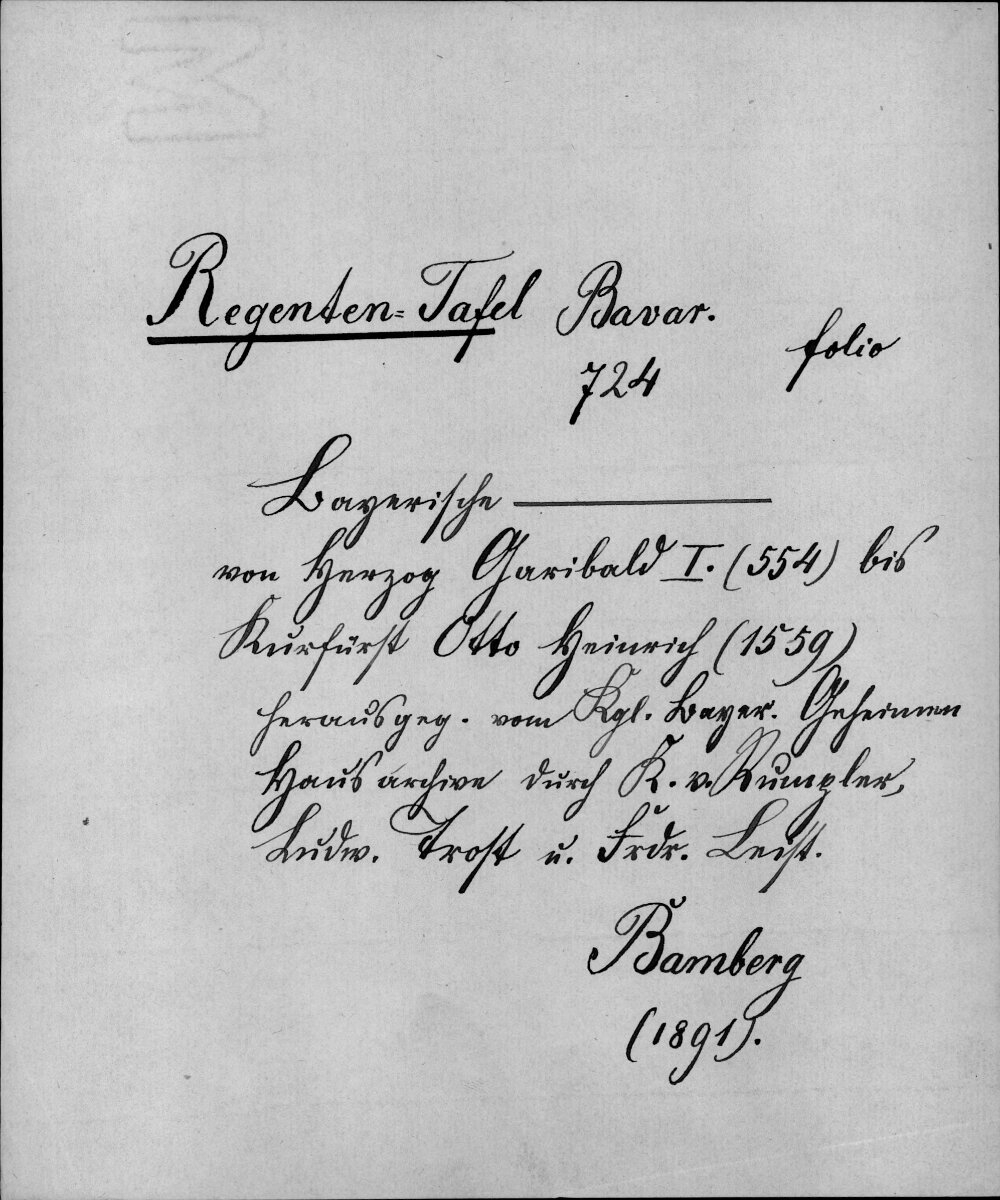 Regenten=Tafel Bavar.
724 folio
Bayerische ———
von Herzog Garibald I. (554) bis
Kurfürst Otto Heinrich (1559)
herausgeg. vom Kgl. Bayer. Geheimen
Hausarchive durch K. v. Rumpler,
Ludw. Trost u. Frdr. Leist.
Bamberg
(1891).